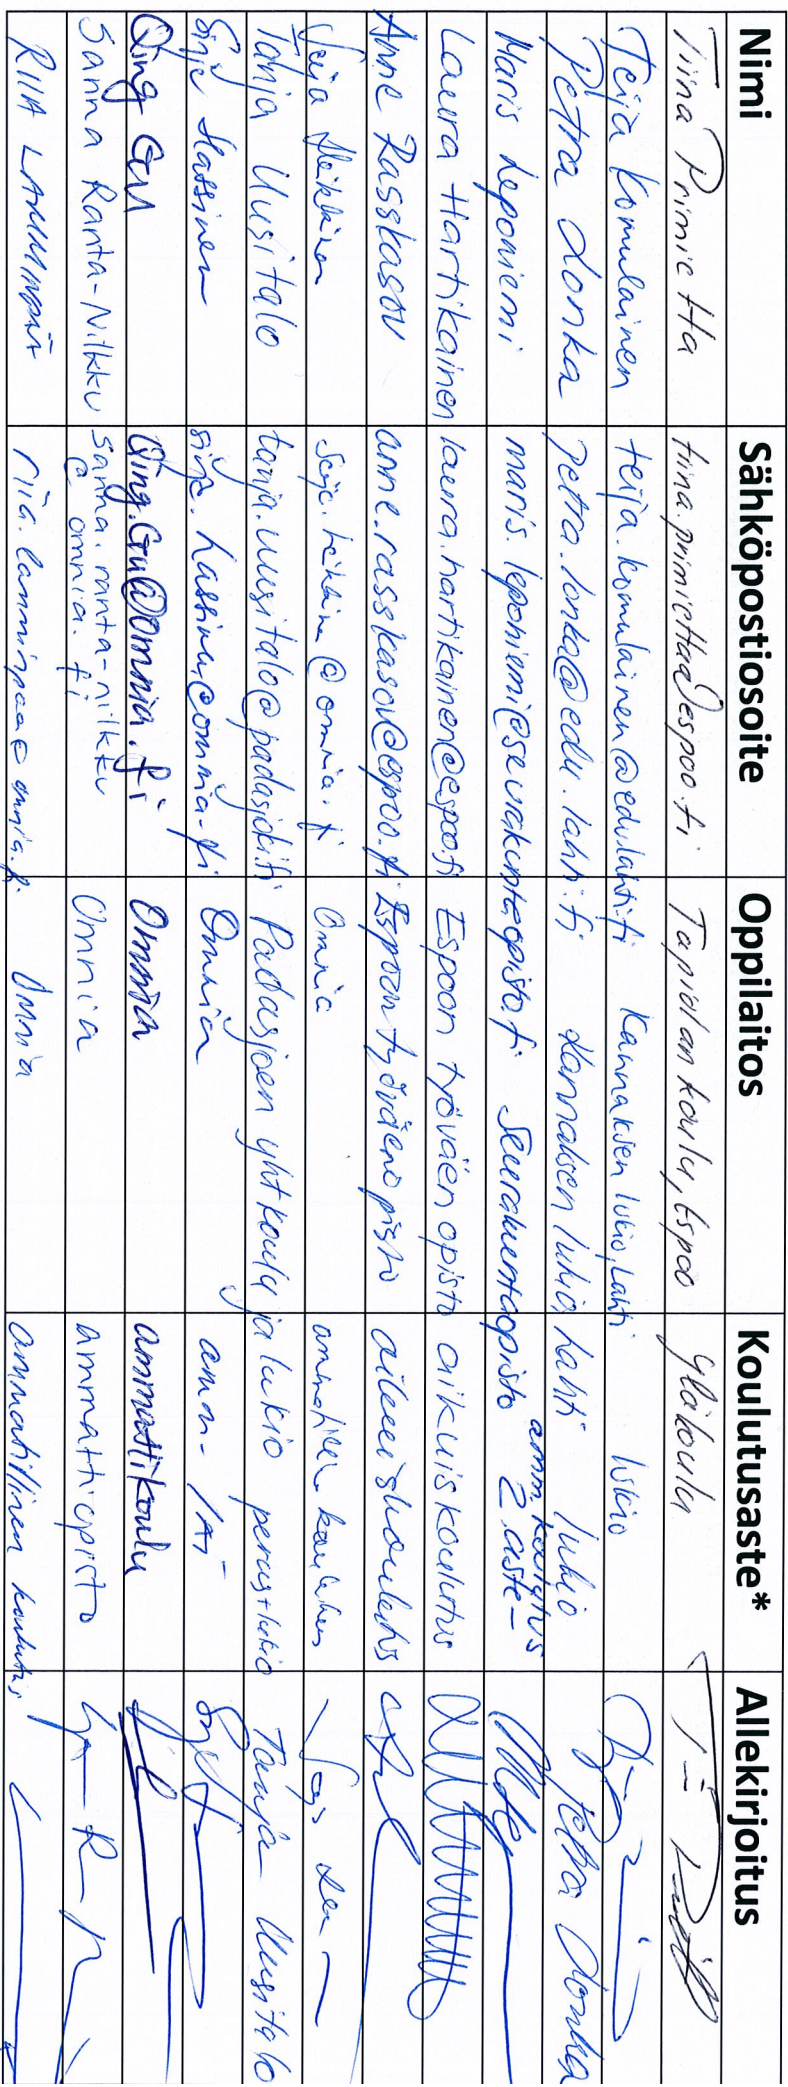 Nimi Sähköpostiosoite Oppilaitos Koulutusaste* Allekirjoitus
Tiina Primietta tiina.primietta@espoo.fi Tapiolan koulu, Espoo yläkoulu
Teija Komulainen teija.komulainen@edu.lahti.fi Kannaksen lukio, Lahti lukio
Petra Lonka petra.lonka@edu.lahti.fi Kannaksen lukio, Lahti lukio Petra Lonka
Maris Leponiemi maris.leponiemi@seurakuntaopisto.fi Seurakuntaopisto amm. koulutus
2. aste
Laura Hartikainen laura.hartikainen@espoo.fi Espoon työväenopisto aikuiskoulutus
Anne Rasskasov anne.rasskasov@espoo.fi Espoon työväenopisto
Omnia
Tanja Uusitalo tanja.uusitalo@padasjoki.fi Padasjoen yhtkoulu ja lukio perus+lukio Tanja Uusitalo
Sirje Hassinen sirje.hassinen@omnia.fi Omnia amm.
Qing Gu Qing.Gu@omnia.fi Omnia ammattikoulu
Sanna Ranta-Nilkku sanna.ranta-nilkku
@omnia.fi Omnia ammattiopisto
RIIA LAMMINPÄÄ riia.lamminpaa@omnia.fi Omnia ammatillinen koulutus